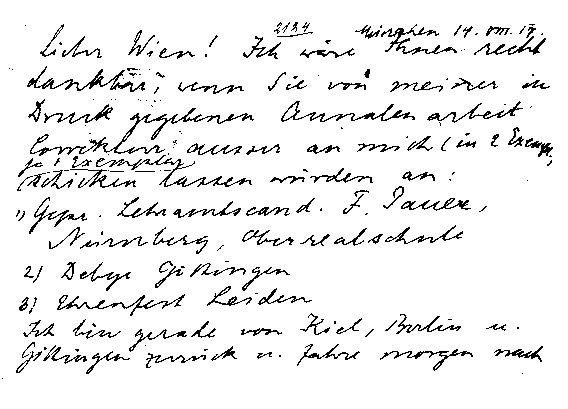 2134 München 14. VIII. 17.
Lieber Wien! Ich wäre Ihnen recht
dankbar, wenn Sie von meiner in
Druck gegebenen Annalenarbeit
Correktur ausser an mich (in 2 Exempl.)
je 1 Exemplar
schicken lassen würden an:
1) Gepr. Lehramtscand. F. Pauer,
Nürnberg, Oberrealschule
2) Debye Göttingen
3) Ehrenfest Leiden
Ich bin gerade von Kiel, Berlin u.
Göttingen zurück u. fahre morgen nach